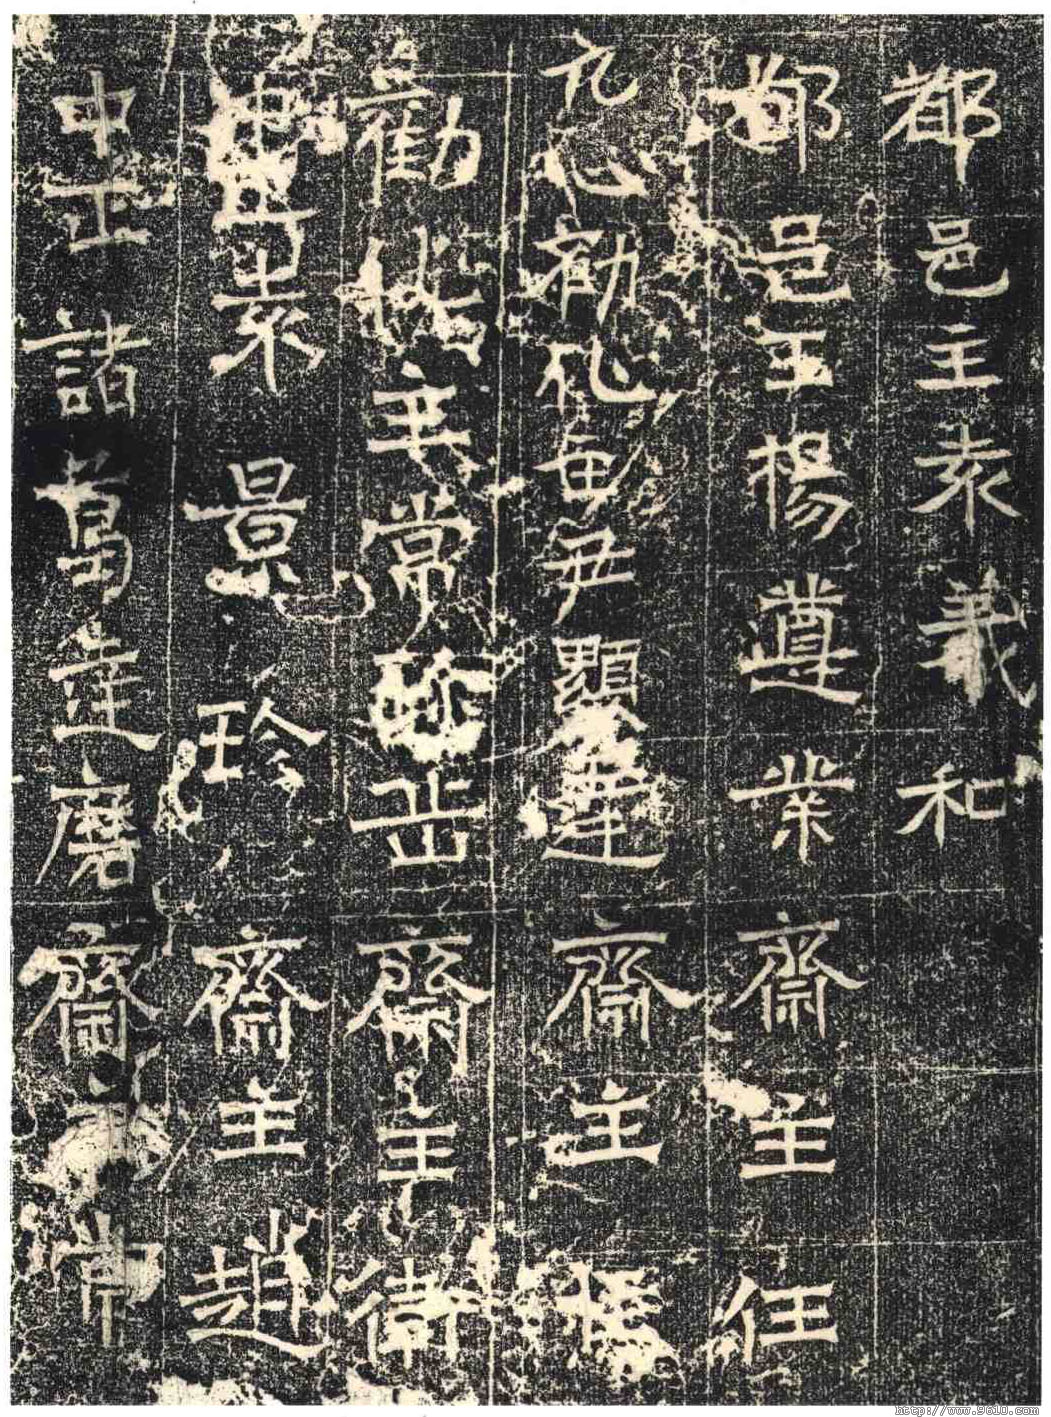 都邑主袁義和
都邑主楊遵業齋主任
元心勸化毌尹顯達齋主
勸化主常珍岳齋主衛
中正袁景珍齋主趙
中正諸葛達磨齋主常
http://www.9610.com